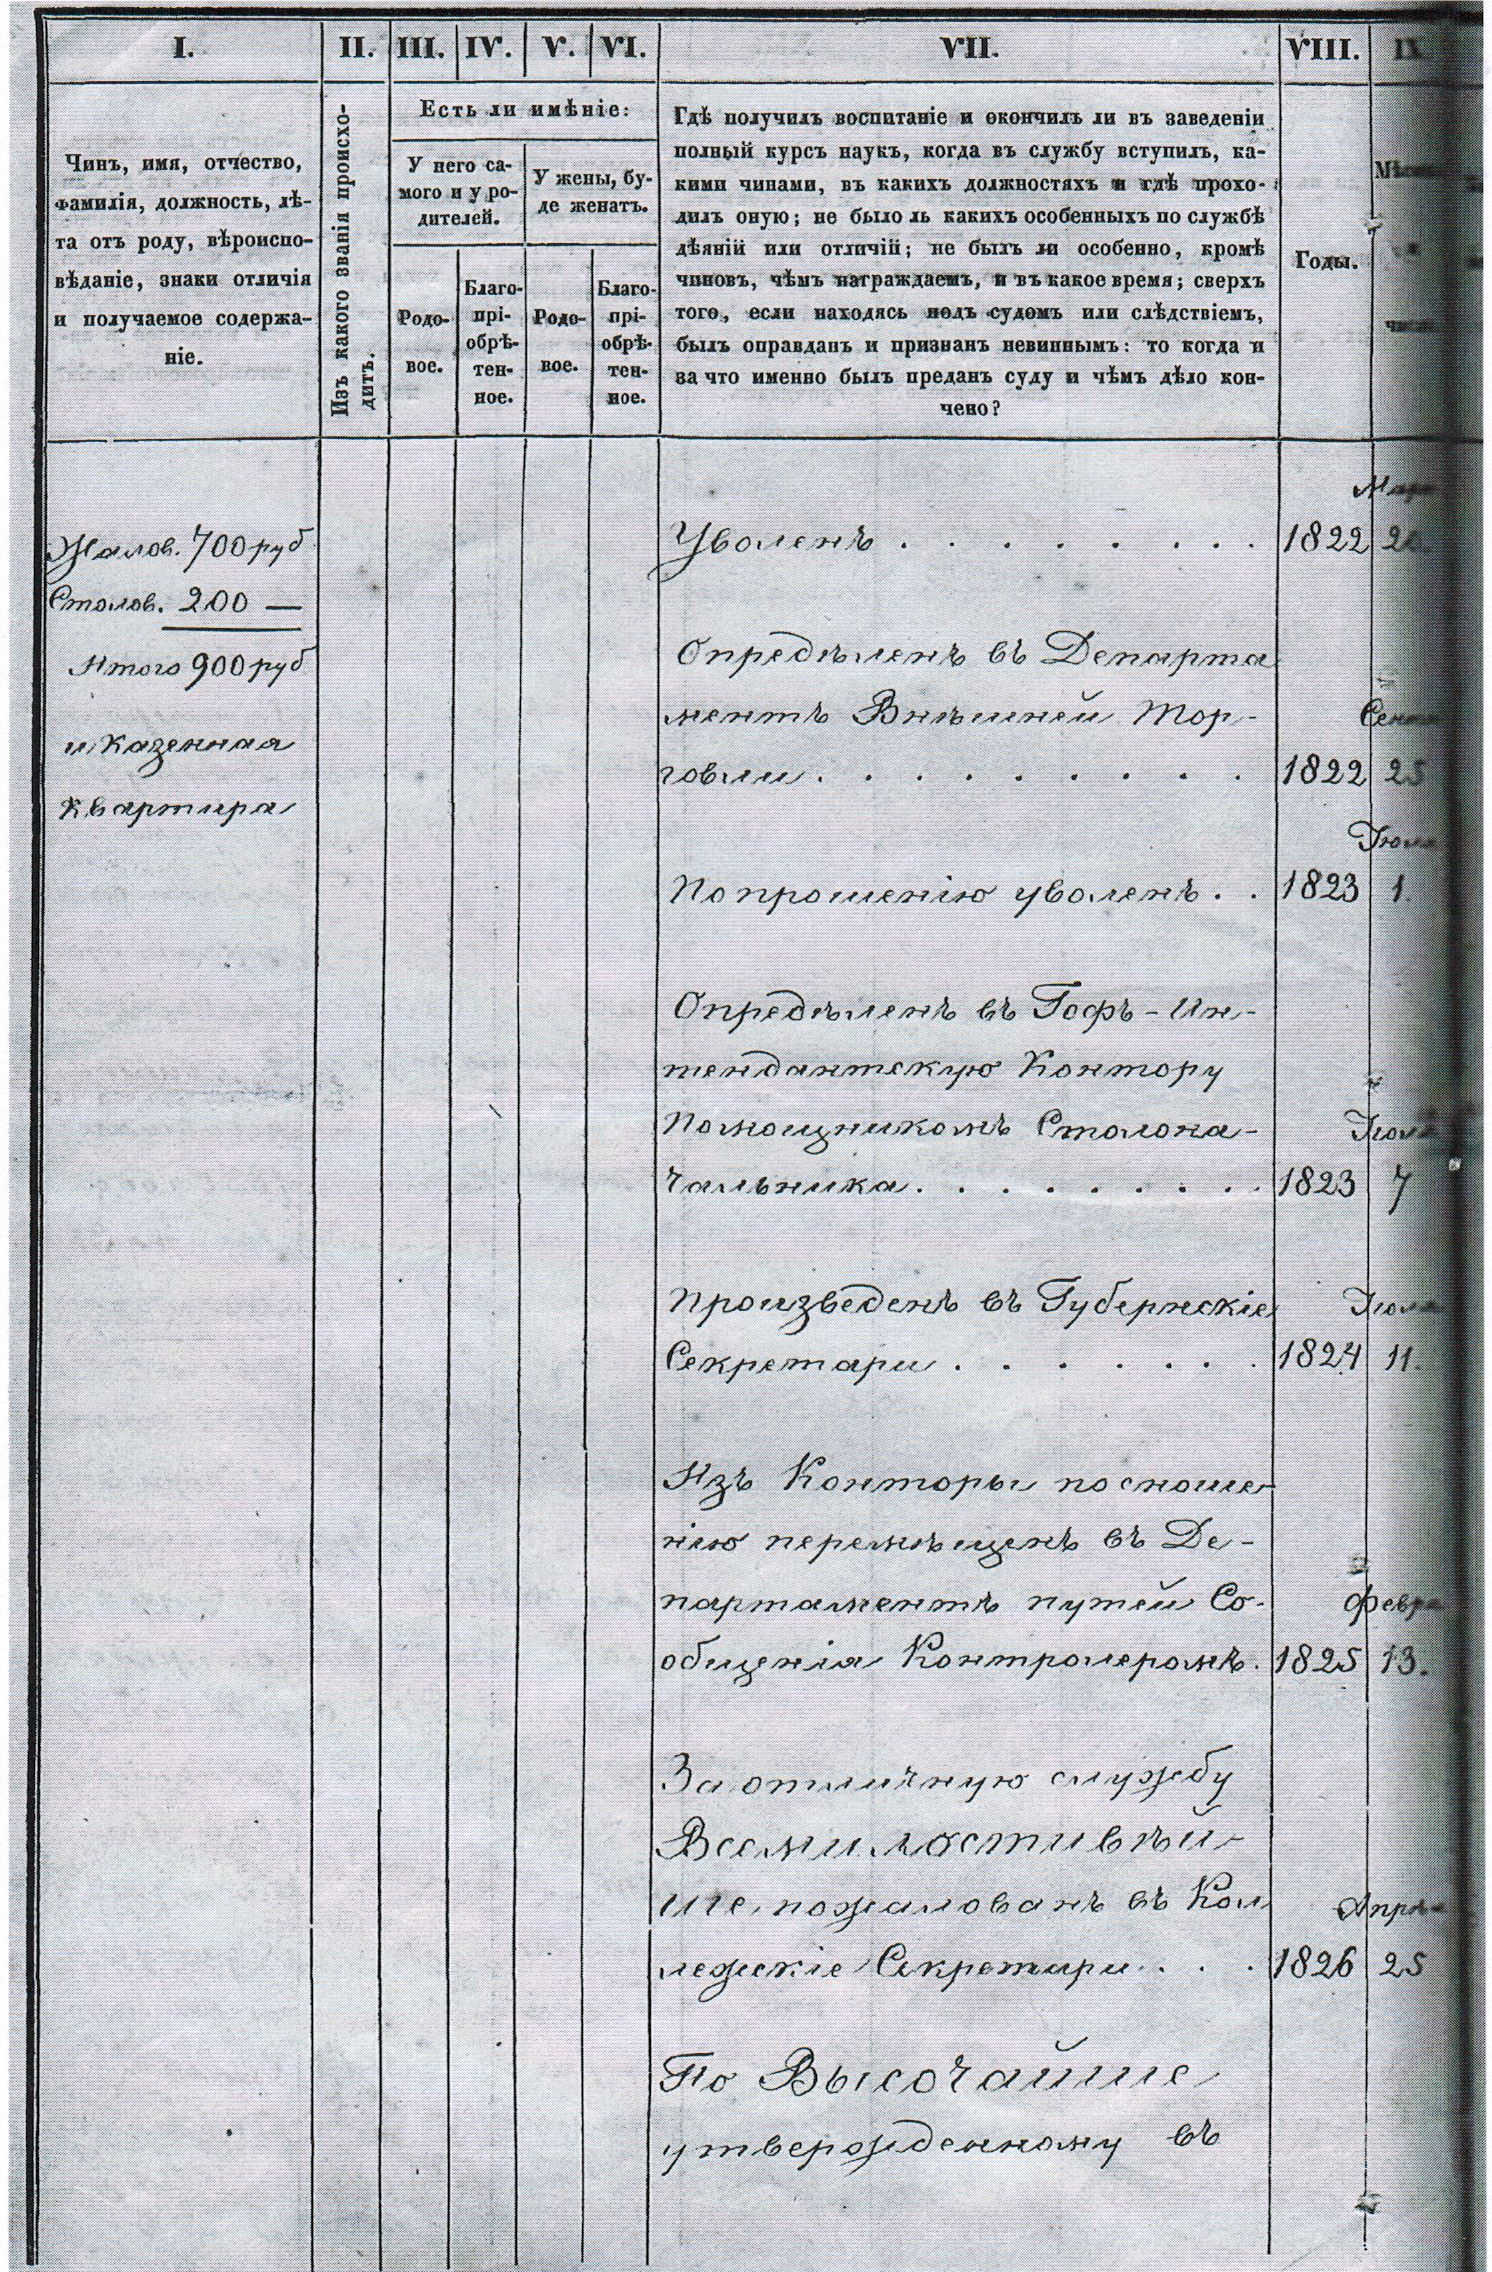 I.
II.
III.
IV.
V.
VI.
VII.
VIII.
IX
Чинъ, имя, отчество,
фамилія, должность, лѣ-
та отъ роду, вѣроиспо-
вѣданіе, знаки отличія
и получаемое содержа-
ніе.
Изъ какого званія происхо-
дитъ.
Есть ли имѣніе:
У него са-
мого и у ро-
дителей.
У жены, бу-
де женатъ.
Родо-
вое.
Благо-
прі-
обрѣ-
тен-
ное.
Родо-
вое.
Благо-
прі-
обрѣ-
тен-
ное.
Гдѣ получилъ воспитаніе и окончилъ ли въ заведеніи
полный курсъ наукъ, когда въ службу вступилъ, ка-
кими чинами, въ какихъ должностяхъ и гдѣ прохо-
дилъ оную; не было ль какихъ особенныхъ по службѣ
дѣяній или отличій; не былъ ли особенно, кромѣ
чиновъ, чѣмъ награждаемъ, и въ какое время; сверхъ
того, если находясь подъ судомъ или слѣдствіемъ,
былъ оправданъ и признанъ невиннымъ: то когда и
за что именно былъ преданъ суду и чѣмъ дѣло кон-
чено?
Годы.
Жалов. 700 руб
Столов. 200 —
Итого 900 руб
и казенная
квартира
Уволенъ . . . . . . . . 1822 20.
Опредѣленъ въ Департа
ментъ Внѣшней Тор-
говли . . . . . . . . 1822 25
Іюля
По прошенію уволенъ . . 1823 1.
Опредѣленъ въ Гофъ-Ин-
тендантскую Контору
Помощникомъ Столона- Іюля
чальника . . . . . . . . 1823 7
Произведенъ въ Губернскіе Іюля
Секретари . . . . . . 1824 11.
Изъ Конторы по сноше-
нію перемѣщенъ въ Де-
партаментъ путей Со- Февра
общенія Контролеромъ. 1825 13.
За отличную службу
Всемилостивѣй-
ше пожалованъ въ Кол Апрѣ
лежскіе Секретари . . . 1826 25
По Высочайше
утвержденному въ